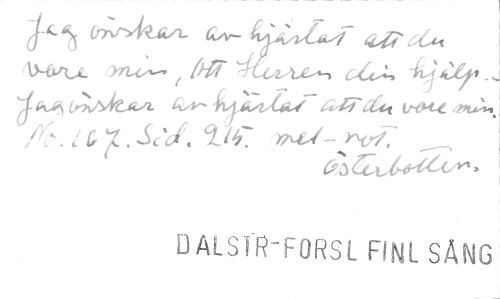 Jag önskar av hjärtat att du
vore min, Att Herren din hjälp -
Jag önskar av hjärtat att du vore min.
No. 167. Sid. 215. mel-not.
Österbotten.
DALSTR-FORSL FINL SÅNG